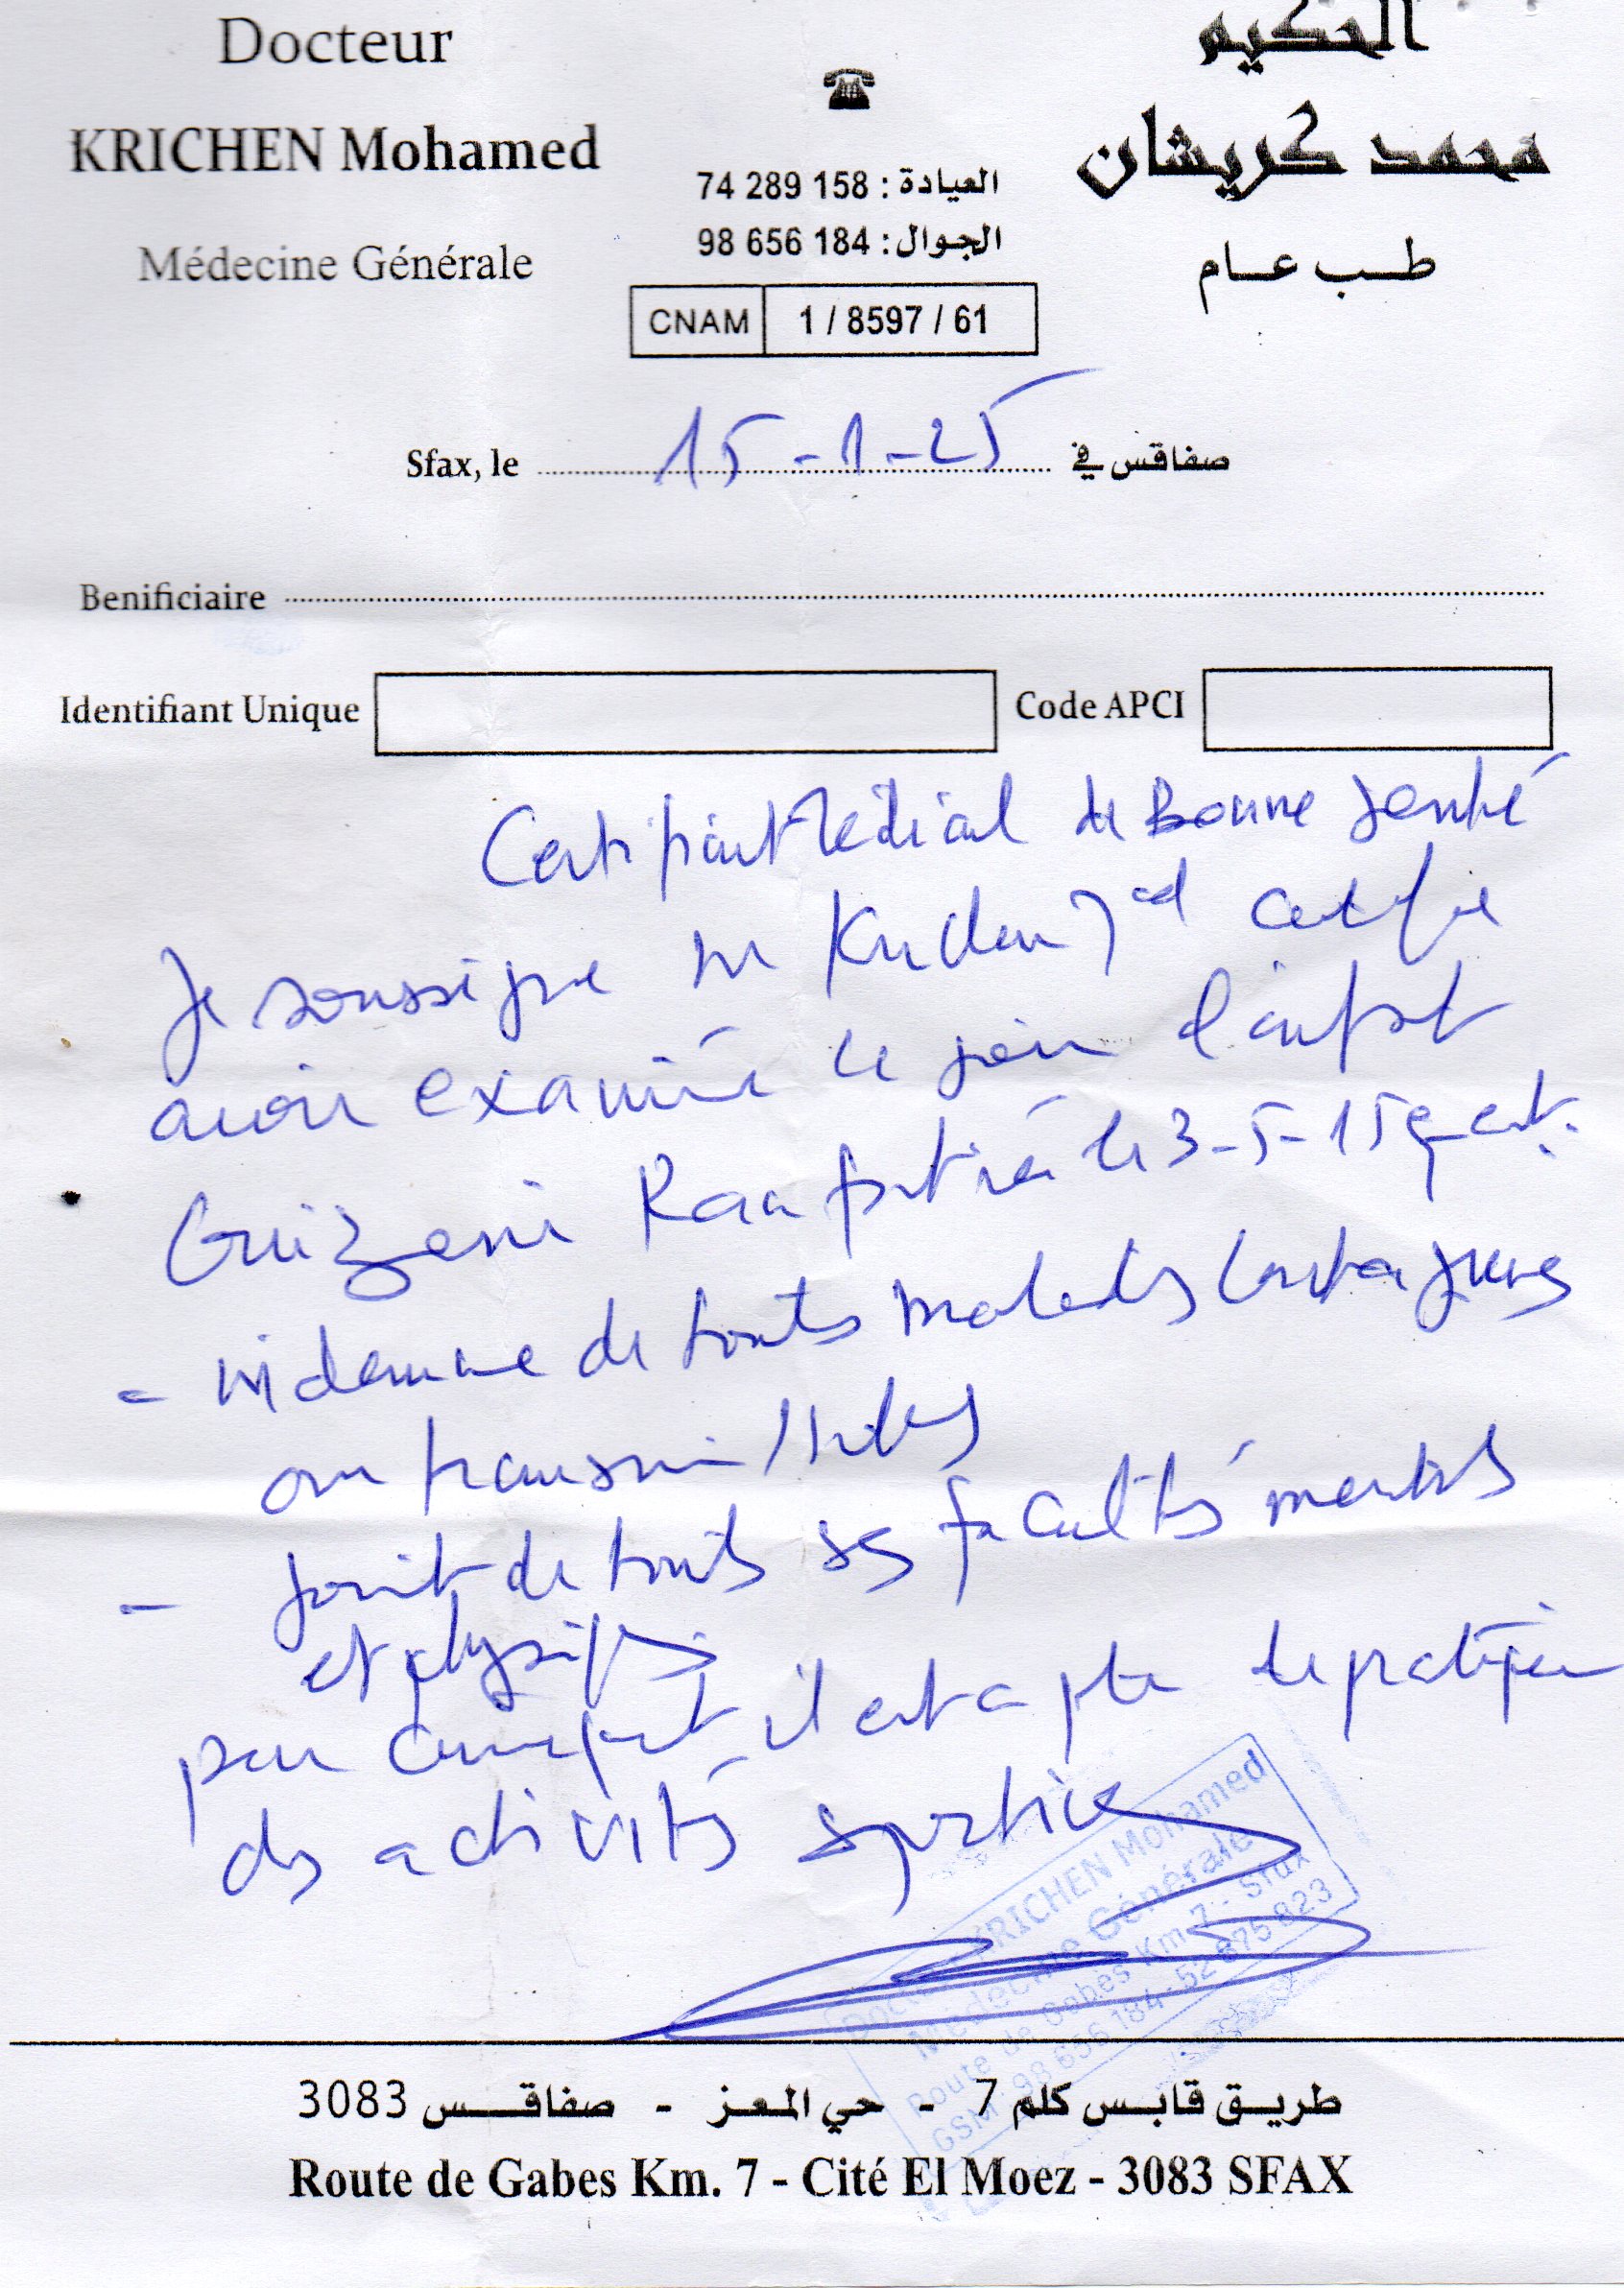 Docteur
KRICHEN Mohamed
Médecine Générale
العيادة : 74 289 158
الجوال : 98 656 184
CNAM 1 / 8597 / 61
الحكيم
محمد كريشان
طب عام
Sfax, le 15-1-25 صفاقس في
Benificiaire
Identifiant Unique Code APCI
Certificat Médical de Bonne Santé
Je soussigné Dr Krichen Med certifie
avoir examiné ce jour l'enfant
Guizeni né le 3-5-15 et est
- indemne de toutes maladies contagieuses
ou transmissibles
- jouit de toutes ses facultés mentales
et physiques
par conséquent il est apte de pratiquer
des activités sportives
Docteur KRICHEN Mohamed
Médecine Générale
Route de Gabès Km 7 - Sfax
GSM 98 656 184 - 52 875 823
طريق قابس كلم 7 - حي المعز - صفاقس 3083
Route de Gabes Km. 7 - Cité El Moez - 3083 SFAX